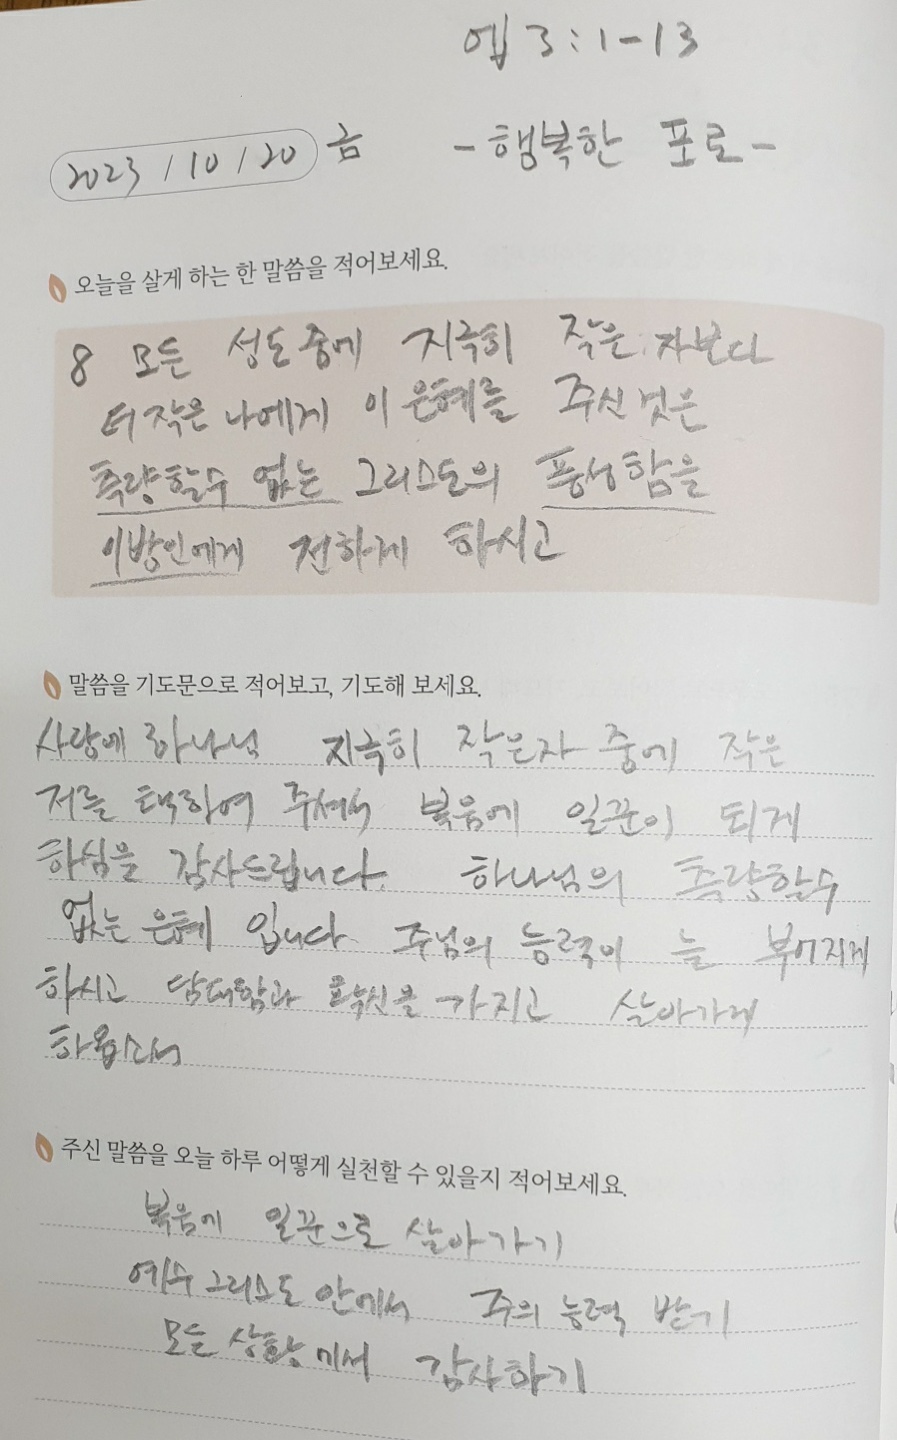 엡 3:1-13
2023/10/20 금
-행복한 포로-
오늘을 살게 하는 한 말씀을 적어보세요.
8 모든 성도 중에 지극히 작은 자보다
더 작은 나에게 이 은혜를 주신 것은
측량할수 없는 그리스도의 풍성함을
이방인에게 전하게 하시고
말씀을 기도문으로 적어보고, 기도해 보세요.
사랑에 하나님 지극히 작은자 중에 작은
저를 택하여 주셔서 복음에 일꾼이 되게
하심을 감사드립니다. 하나님의 측량할수
없는 은혜 입니다. 주님의 능력이 늘 부어지게
하시고 담대함과 확신을 가지고 살아가게
하옵소서
주신 말씀을 오늘 하루 어떻게 실천할 수 있을지 적어보세요.
복음에 일꾼으로 살아가기
예수그리스도 안에서 주의 능력 받기
모든 상황에서 감사하기